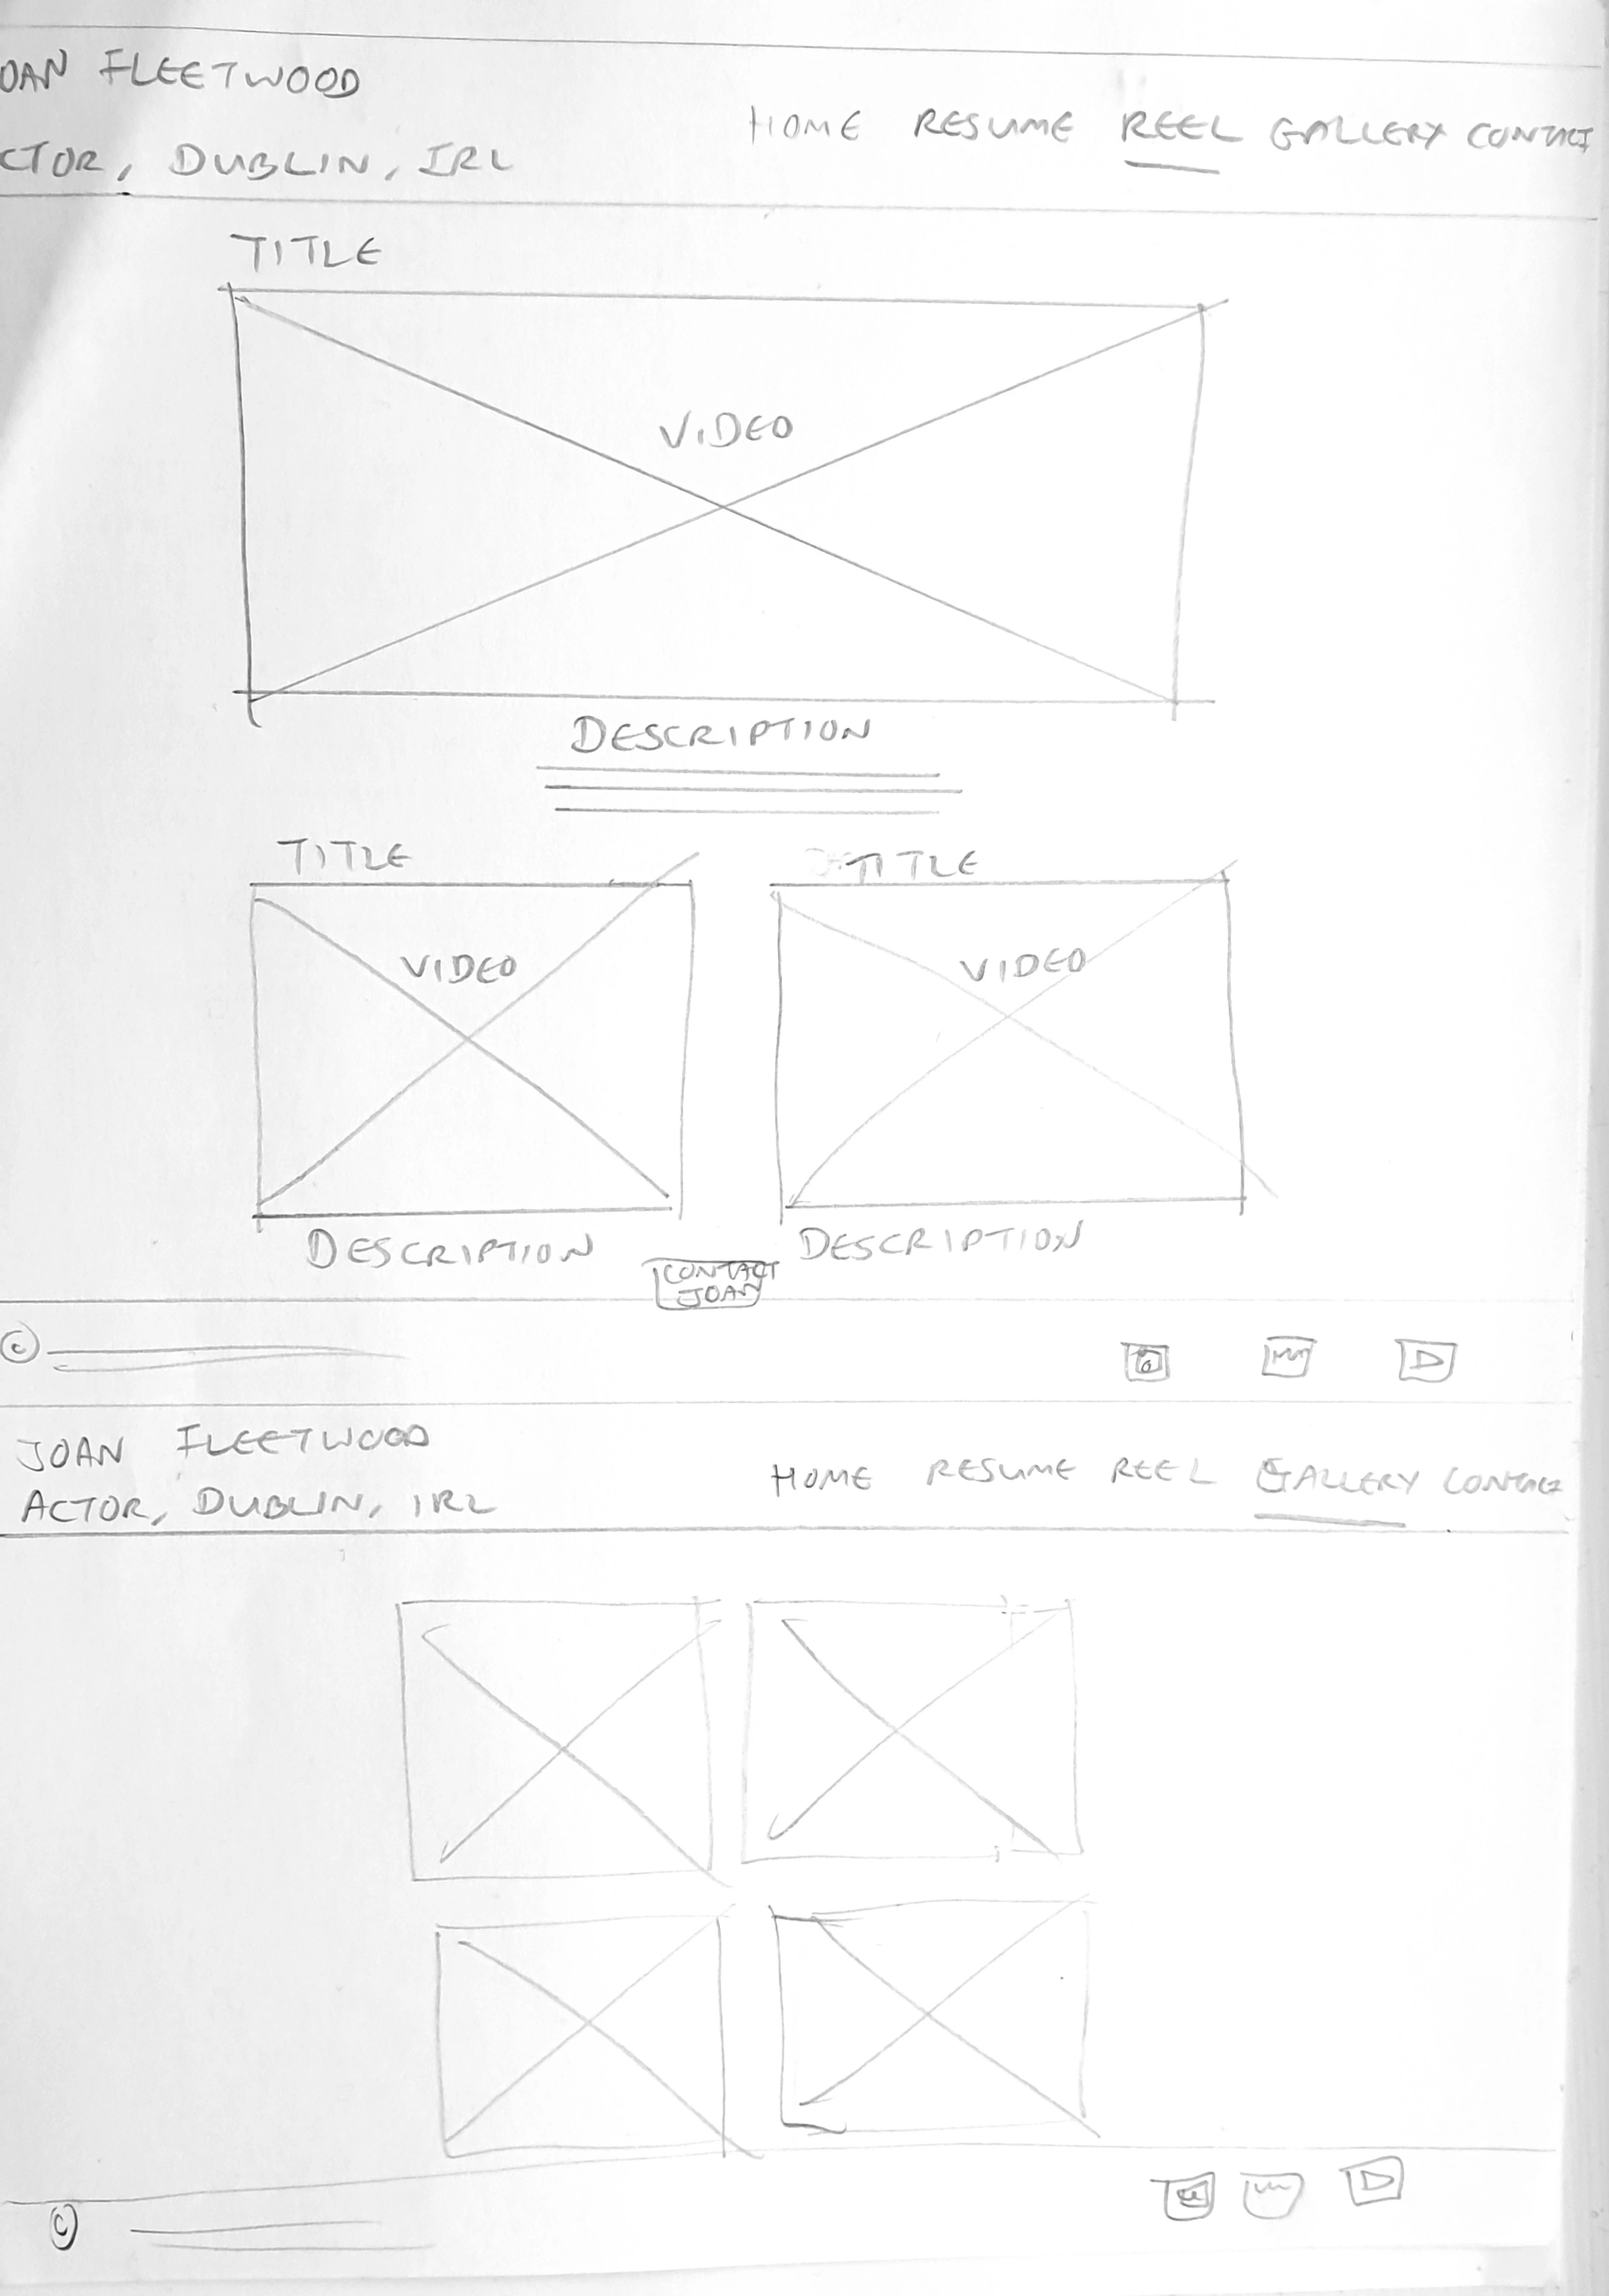 OAN FLEETWOOD
CTOR, DUBLIN, IRL
HOME RESUME REEL GALLERY CONTACT
TITLE
VIDEO
DESCRIPTION
TITLE
TITLE
VIDEO
VIDEO
DESCRIPTION
DESCRIPTION
CONTACT
JOAN
©
JOAN FLEETWOOD
ACTOR, DUBLIN, IRL
HOME RESUME REEL GALLERY CONTACT
©